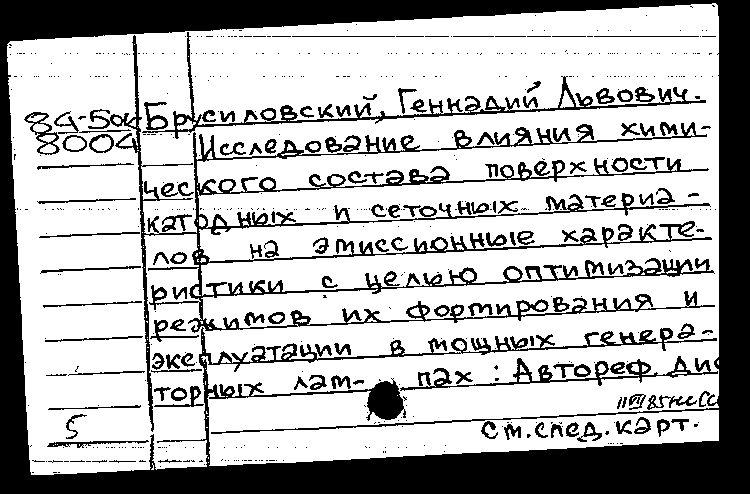 84-504 Брусиловский, Геннадий Львович.
8004 Исследование влияния хими-
ческого состава поверхности
катодных и сеточных материа-
лов на эмиссионные характе-
ристики с целью оптимизации
режимов их формирования и
эксплуатации в мощных генера-
торных лам- пах: Автореф. дис
5
см. след. карт.